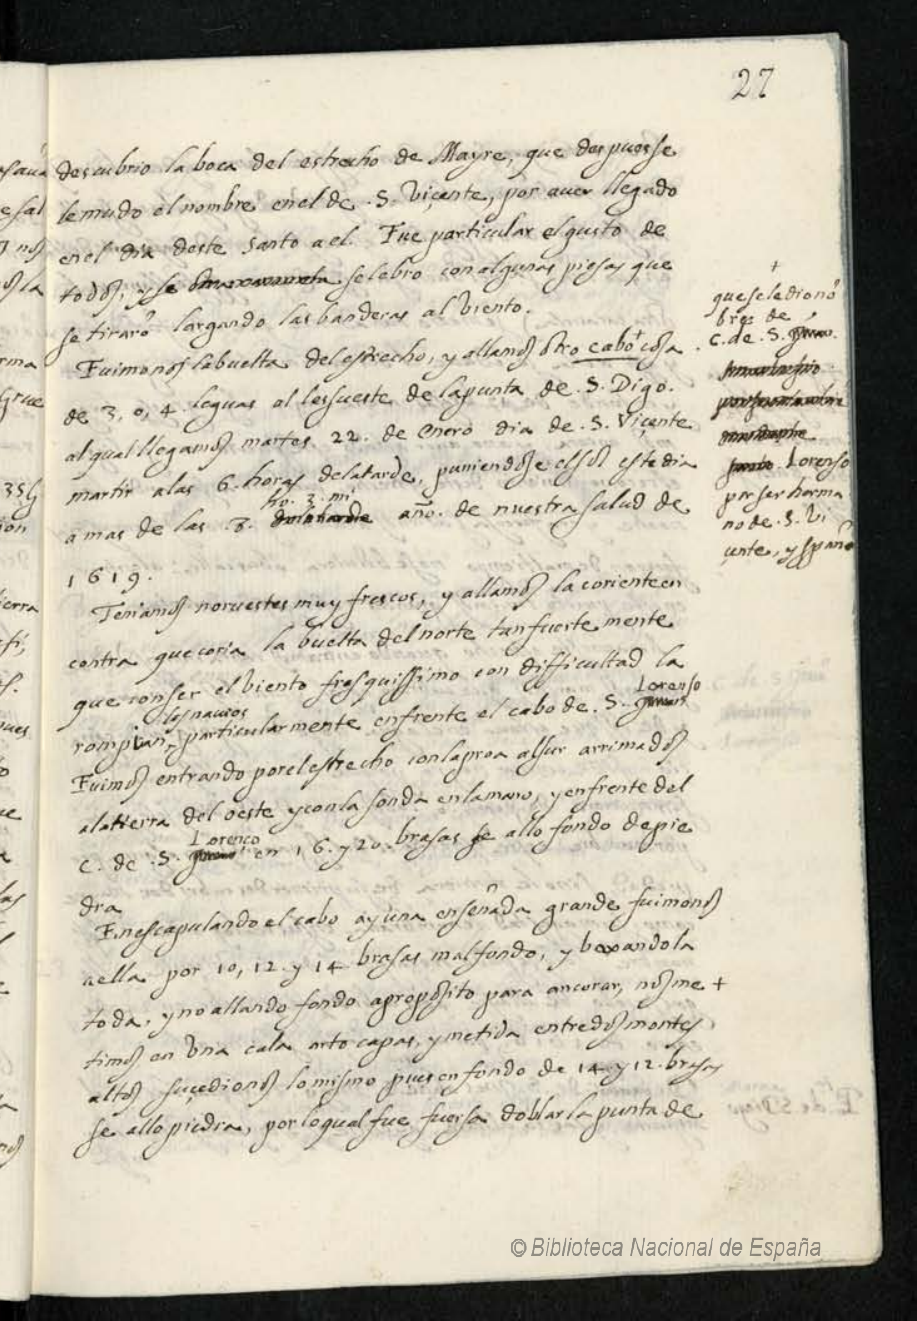 27
descubrio la boca del estrecho de Mayre, que despues se
le mudo el nombre en el de .S. Viçente, por auer llegado
en el dia deste santo a el. Fue particular el gusto de
todos, y se selebro con algunas piesas que
se tiraro͂ largando las banderas al viento.
Fuimonos la buelta del estrecho, y allamos otro cabo + cosa
de 3, o, 4 leguas al lessueste de la punta de .S. Digo.
al qual llegamos martes 22. de enero dia de .S. Viçente
martir a las 6. horas de la tarde, puniendose el sol este dia
ho. 3. mi
a mas de las 3. de la tarde año. de nuestra salud de
1619.
Teniamos noruestes muy frescos, y allamos la coriente en
contra que coria la buelta del norte tan fuerte mente
que con ser el viento fresquissimo con difficultad la
los navios Lorenso
rompian, particularmente enfrente el cabo de .S. Juan
Fuimos entrando por el estrecho con la proa al sur arrimados
a la tierra del oeste y con la sonda en la mano, y enfrente del
Lorenço
C. de .S. en 16. y 20. brasas se allo fondo de pie
dra
En escapulando el cabo ay una ensenada grande fuimonos
a ella por 10, 12. y 14 brasas mal fondo, y boxandola
toda, y no allando fondo aproposito para ancorar, nos me +
timos en vna cala arto capas, y metida entre dos montes
altos suçedionos lo mismo pues en fondo de 14. y 12. brasas
se allo piedra, por lo qual fue fuersa doblar la punta de
+
que se le dio no͂
bre de
C. de .S.
Lorenso
por ser herma
no de .S. Vi
çente, y españo
© Biblioteca Nacional de España